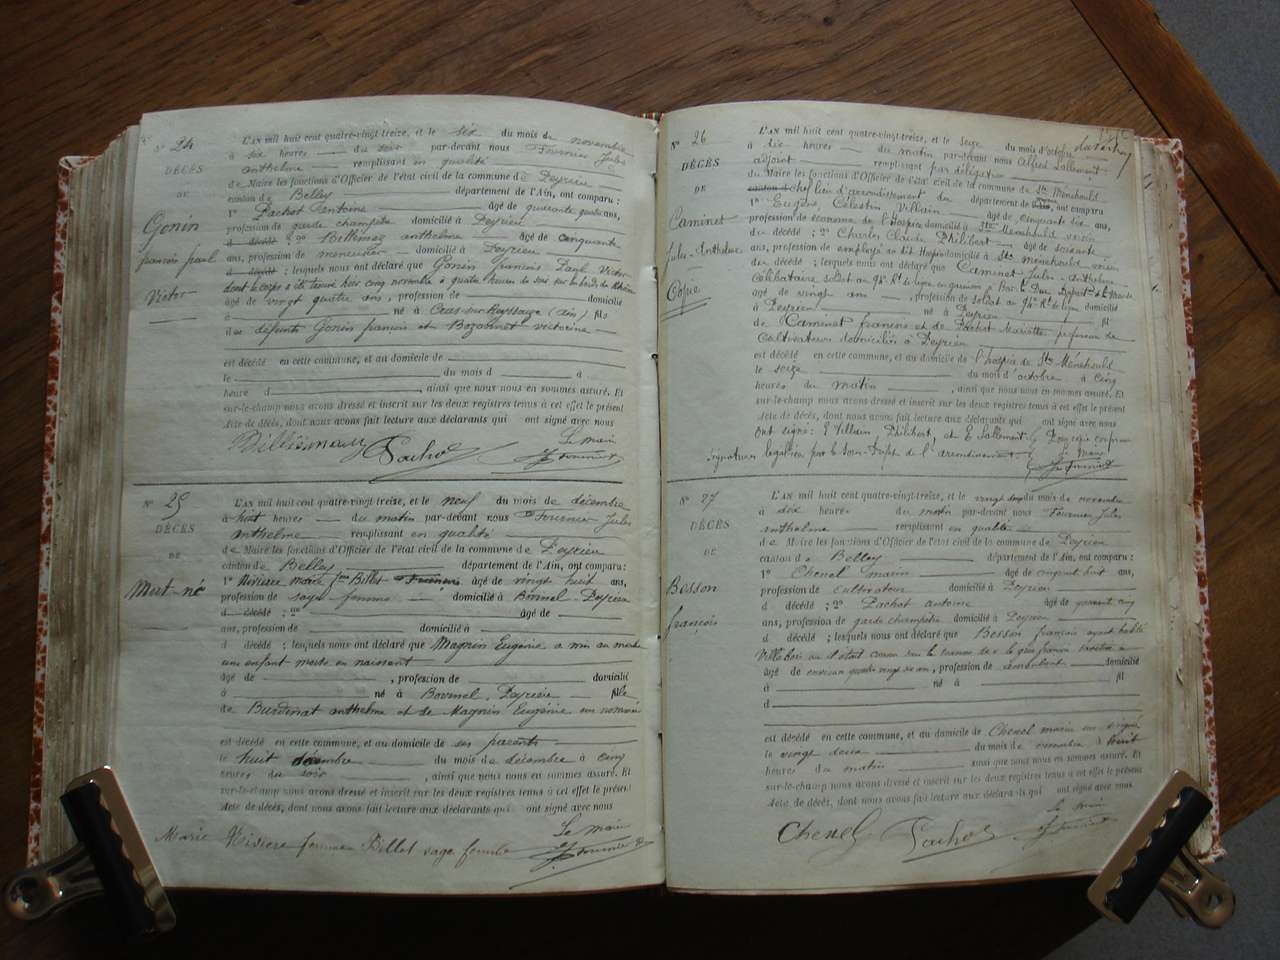 N° 24
DÉCÈS
DE
Gonin
françois paul
Victor
L'AN mil huit cent quatre-vingt-treize, et le six du mois de novembre
à six heures du soir par-devant nous Fournier Jules
anthelme remplissant en qualité
de Maire les fonctions d'Officier de l'état civil de la commune de Peyrieu
canton de Belley département de l'Ain, ont comparu :
1° Pachot Antoine âgé de quarante quatre ans,
profession de garde champêtre domicilié à Peyrieu
d décédé ; 2° Billiémaz anthelme âgé de cinquante
ans, profession de meunier domicilié à Peyrieu
d décédé ; lesquels nous ont déclaré que Gonin françois Paul Victor
dont le corps a été trouvé hier cinq novembre à quatre heures du soir sur les bords du Rhône
âgé de vingt quatre ans, profession de domicilié
à né à Cras-sur-Reyssouze (ain) fils
des défunts Gonin françois et Bozonnet victorine
est décédé en cette commune, et au domicile de
le du mois d à
heure d , ainsi que nous nous en sommes assuré. Et
sur-le-champ nous avons dressé et inscrit sur les deux registres tenus à cet effet le présent
Acte de décès, dont nous avons fait lecture aux déclarants qui ont signé avec nous
Pachot
Le maire
J. Fournier
N° 25
DÉCÈS
DE
Mort-né
L'AN mil huit cent quatre-vingt-treize, et le neuf du mois de décembre
à huit heures du matin par-devant nous Fournier Jules
anthelme remplissant en qualité
de Maire les fonctions d'Officier de l'état civil de la commune de Peyrieu
canton de Belley département de l'Ain, ont comparu :
1° Rivière Marie fme Billet âgé de vingt huit ans,
profession de sage femme domicilié à Bovinel Peyrieu
d décédé ; 2° âgé de
ans, profession de domicilié à
d décédé ; lesquels nous ont déclaré que Magnin Eugénie a mis au monde
une enfant morte en naissant
âgé de , profession de domicilié
à né à Bovinel, Peyrieu fille
de Burdinat anthelme et de Magnin Eugénie
est décédé en cette commune, et au domicile de ses parents
le huit décembre du mois de décembre à cinq
heures du soir , ainsi que nous nous en sommes assuré. Et
sur-le-champ nous avons dressé et inscrit sur les deux registres tenus à cet effet le présent
Acte de décès, dont nous avons fait lecture aux déclarants qui ont signé avec nous
Marie Riviere femme Billet sage femme
Le maire
J. Fournier
N° 26
DÉCÈS
DE
Caminet
Jules-Anthelme
Copie
L'AN mil huit cent quatre-vingt-treize, et le Seize du mois d'octobre
à dix heures du matin par-devant nous Alfred Lallement
adjoint remplissant par délégation
du Maire les fonctions d'Officier de l'état civil de la commune de Ste Ménehould
canton d chef lieu d'arrondissement du département de la Marne ont comparu
1° Eugène, Célestin Villain âgé de Cinquante six ans,
profession de économe de l'Hospice domicilié à Ste Ménehould voisin
du décédé ; 2° Charles Claude Philibert âgé de soixante
ans, profession de employé au dit Hospice domicilié à Ste Ménehould, voisin
du décédé ; lesquels nous ont déclaré que Caminet Jules-Anthelme
Célibataire soldat au 94e Rt de ligne en garnison à Bar-le-Duc
âgé de vingt ans , profession de Soldat au 94e Rt de ligne domicilié
à Peyrieu né à Peyrieu fil
de Caminet francois et de Pachot Mariette profession de
Cultivateurs domiciliés à Peyrieu
est décédé en cette commune, et au domicile de l'hospice de Ste Ménehould
le seize du mois d'octobre à Cinq
heures du matin , ainsi que nous nous en sommes assuré. Et
sur-le-champ nous avons dressé et inscrit sur les deux registres tenus à cet effet le présent
Acte de décès, dont nous avons fait lecture aux déclarants qui ont signé avec nous
Ont signé : E Villain Philibert, et E Lallement Pour copie conforme
Signatures légalisées par le Sous-Préfet de l'arrondissement
Le Maire
J. Fournier
N° 27
DÉCÈS
DE
Besson
françois
L'AN mil huit cent quatre-vingt-treize, et le vingt deux du mois de novembre
à dix heures du matin par-devant nous Fournier Jules
anthelme remplissant en qualité
de Maire les fonctions d'Officier de l'état civil de la commune de Peyrieu
canton de Belley département de l'Ain, ont comparu :
1° Chenel marin âgé de cinquante huit ans,
profession de cultivateur domicilié à Peyrieu
d décédé ; 2° Pachot antoine âgé de quarante cinq
ans, profession de garde champêtre domicilié à Peyrieu
d décédé ; lesquels nous ont déclaré que Besson françois ayant habité
Villebois où il était connu sous le surnom de le gros françois
âgé de environ quatre vingts ans, profession de domicilié
à né à fil
d
est décédé en cette commune, et au domicile de Chenel marin
le vingt deux du mois de novembre à huit
heures du matin ainsi que nous nous en sommes assuré. Et
sur-le-champ nous avons dressé et inscrit sur les deux registres tenus à cet effet le présent
Acte de décès, dont nous avons fait lecture aux déclarants qui ont signé avec nous
Chenel Pachot
Le maire
J. Fournier